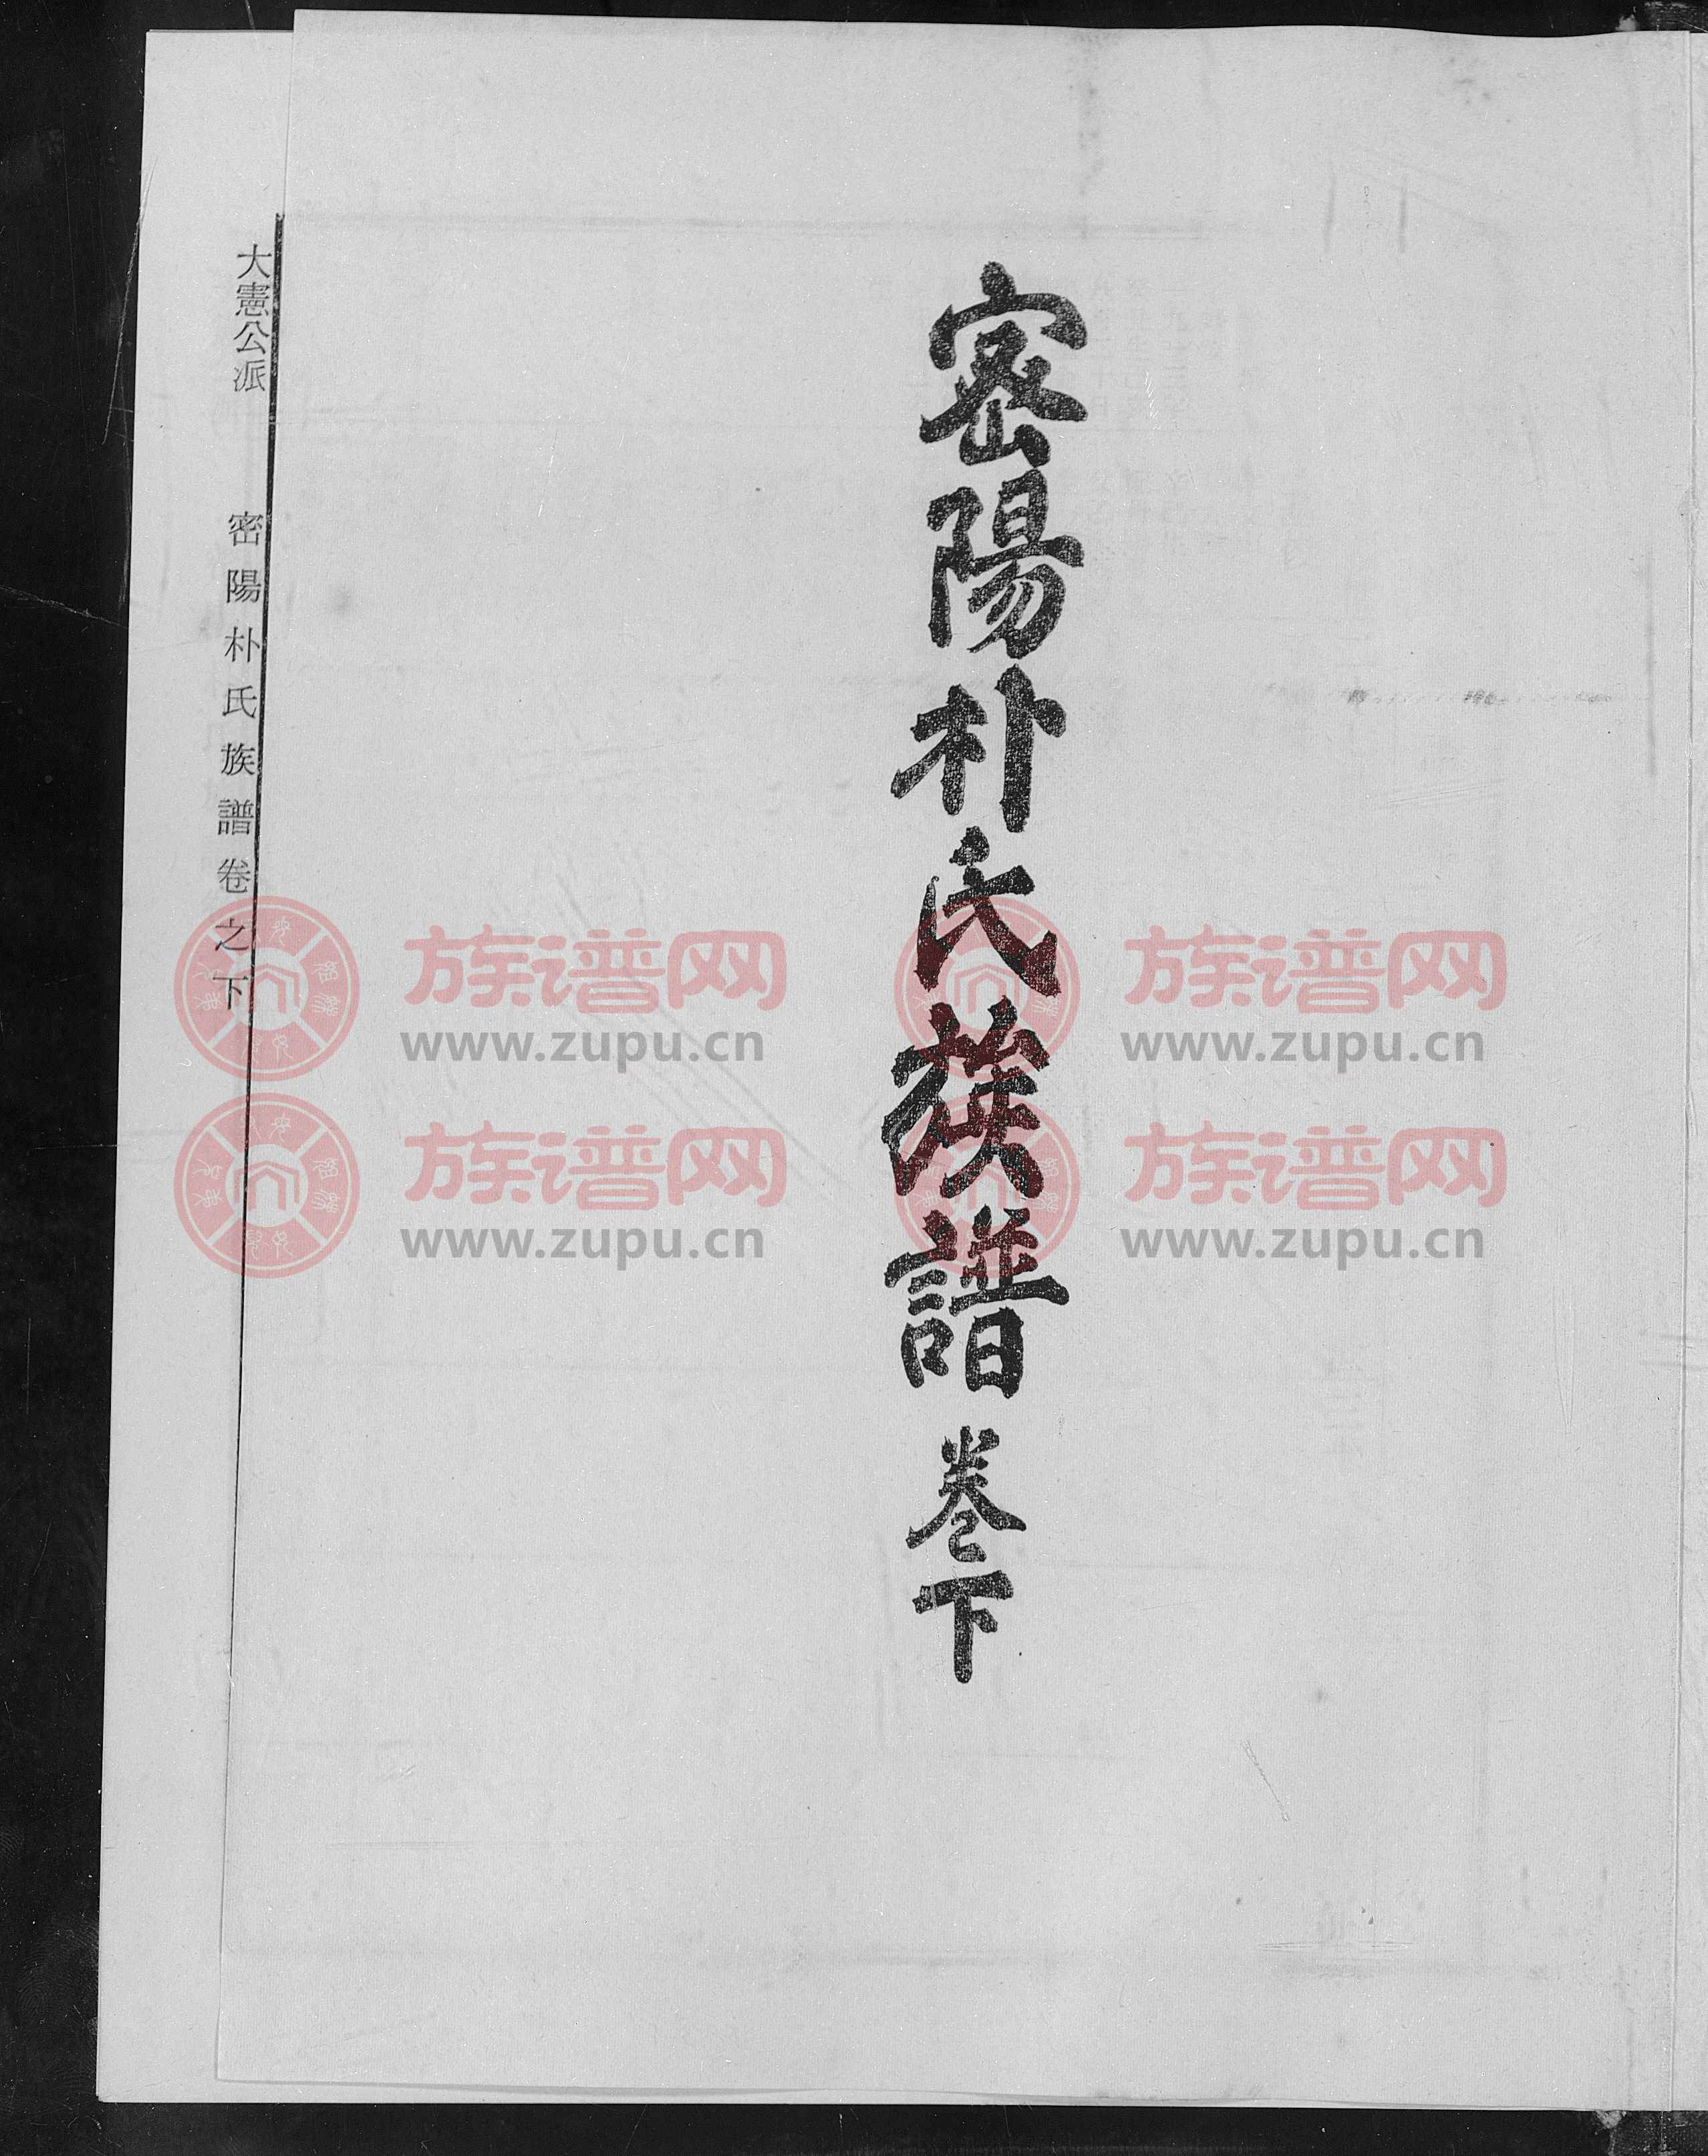 密陽朴氏族譜 卷下
大憲公派 密陽朴氏族譜卷之下
族谱网 族谱网
www.zupu.cn www.zupu.cn
族谱网 族谱网
www.zupu.cn www.zupu.cn